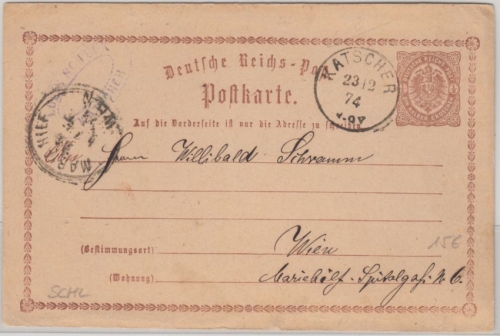 Deutsche Reichs-Post
Postkarte.
KATSCHER
23 12
74
Auf die Vorderseite ist nur die Adresse zu schreiben
MARIAHILF
WIEN
An Herrn Willibald Schramm
(Bestimmungsort) Wien
(Wohnung) Mariahilf
SCHL
156